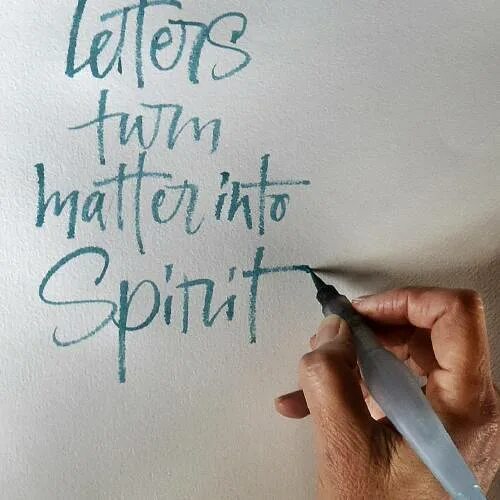 Letters
turn
matter into
Spirit